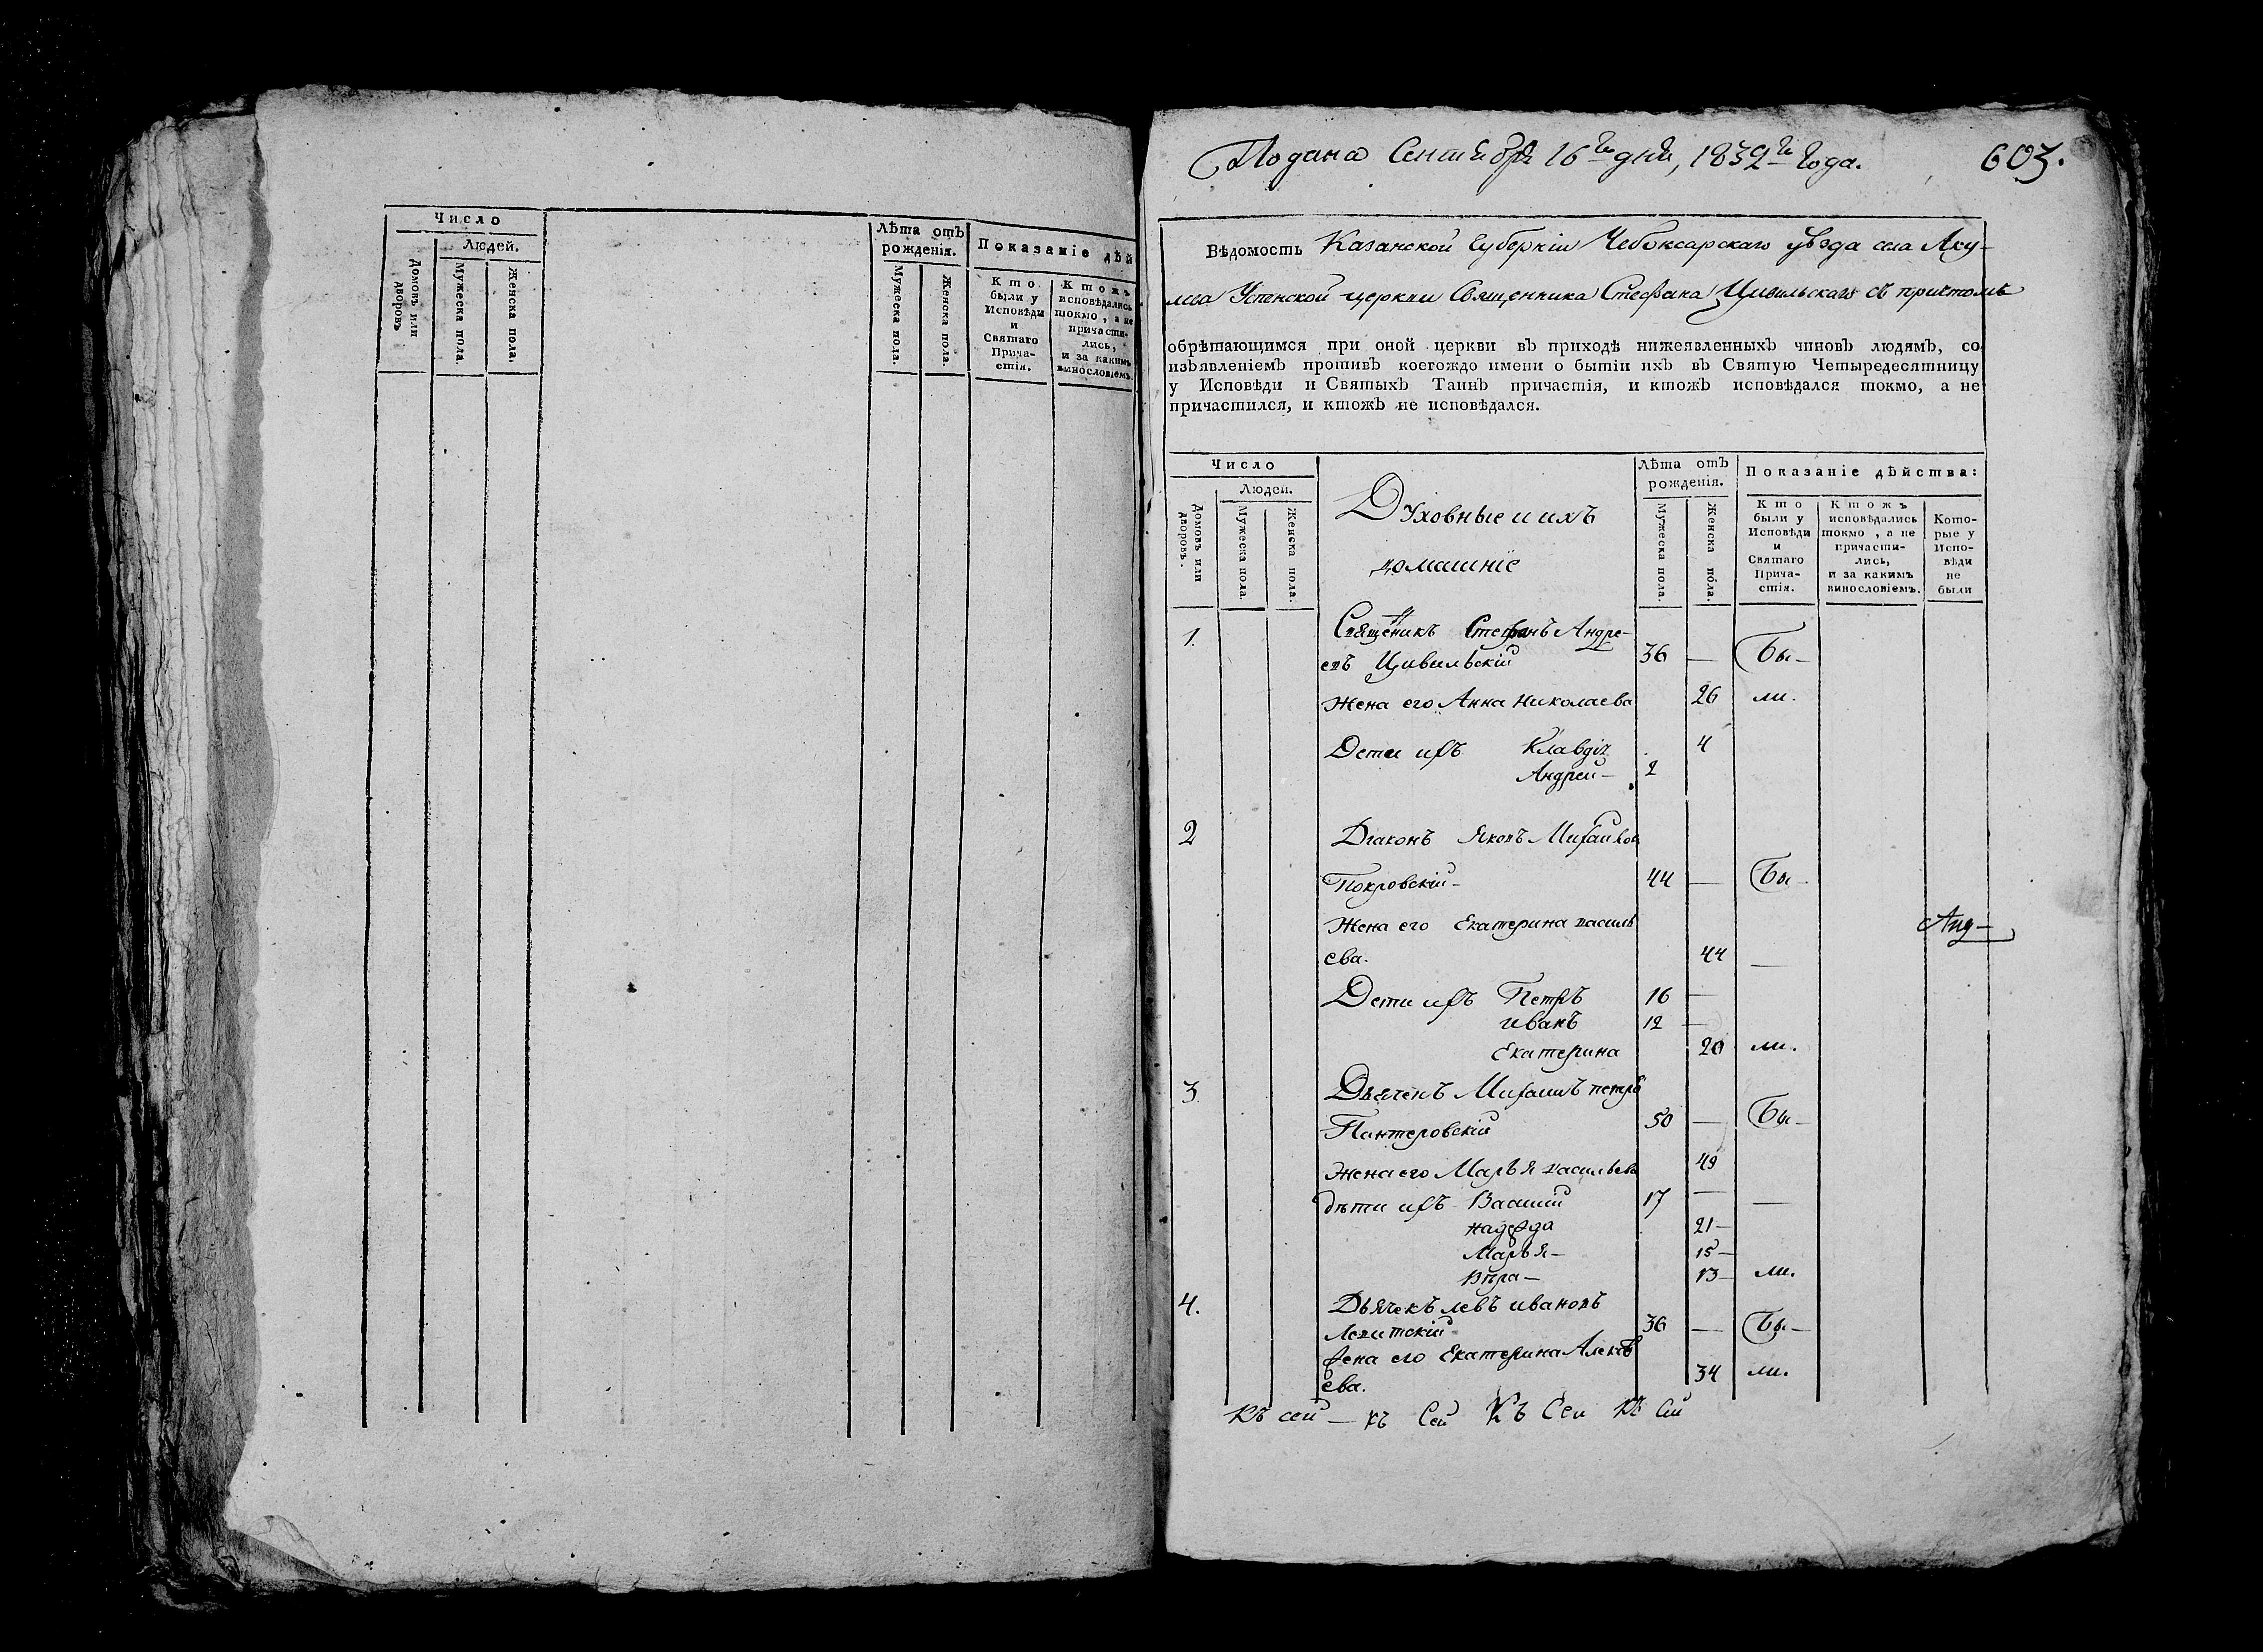 Число
Людей.
Домовъ или дворовъ
Мужеска пола.
Женска пола.
Лѣта отъ рожденія.
Мужеска пола.
Женска пола.
Показаніе дѣй
Кто были у Исповѣди и Святаго Прича-стія.
Ктожъ исповѣдались токмо, а не причасти-лись, и за какимъ винословіемъ.
Подана Сентября 16го дня, 1832го Года.
603.
Вѣдомость Казанской Губерніи Чебоксарскаго уѣзда села Аку-
лева Успенской церкви Священника Стефана Цивильскаго съ причтомъ
обрѣтающимся при оной церкви въ приходѣ нижеявленныхъ чиновъ людямъ, со
изъявленіемъ противъ коегождо имени о бытіи ихъ въ Святую Четыредесятницу
у Исповѣди и Святыхъ Таинъ причастія, и ктожъ исповѣдался токмо, а не
причастился, и ктожъ не исповѣдался.
Число
Людей.
Домовъ или дворовъ.
Мужеска пола.
Женска пола.
Духовные и ихъ
домашніе
Лѣта отъ рожденія.
Мужеска пола.
Женска пола.
Показаніе дѣйства:
Кто были у Исповѣди и Святаго Прича-стія.
Ктожъ исповѣдались токмо, а не причасти-лись, и за какимъ винословіемъ.
Кото-рые у Испо-вѣди не были
1. Священикъ Стефанъ Андре-
евъ Цивильскій 36 — Бы-
Жена его Анна Николаева 26 ли.
Дети ихъ Клавдія 4
Андрей — 2
2 Діаконъ Яковъ Михайлов
Покровскій — 44 — Бы-
Жена его Екатерина василь
ева. 44 —
Анд-
Дети ихъ Петръ 16 —
иванъ 12 —
Екатерина 20 ли.
3 Дьячекъ Михаилъ петро
Пантеровскій 50 — Бы-
Жена его Марья васильева 49
дѣти ихъ Василій 17 — —
надежда 21 —
Марья — 15 —
Вѣра — 13 — ли.
4. Дьячекъ левъ ивановъ
Левитскій 36 — Бы-
жена его Екатерина Алексѣ
ева. 34 ли.
Къ сей — къ Сей Къ Сей Къ Сей